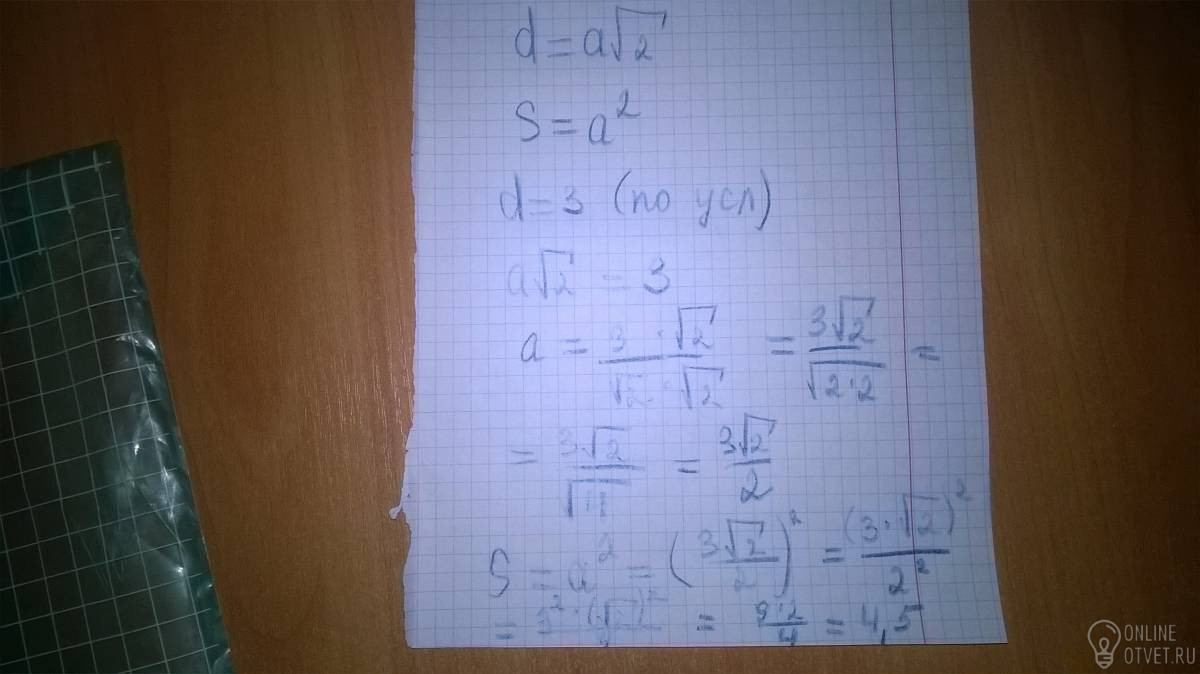 d = a√2
S = a²
d = 3 (по усл)
a√2 = 3
a = (3·√2)/(√2·√2) = (3√2)/(√(2·2)) =
= (3√2)/(√4) = (3√2)/2
S = a² = ((3√2)/2)² = (3·√2)²/2²
= (3²·(√2)²)/4 = (9·2)/4 = 4,5
ONLINE
OTVET.RU